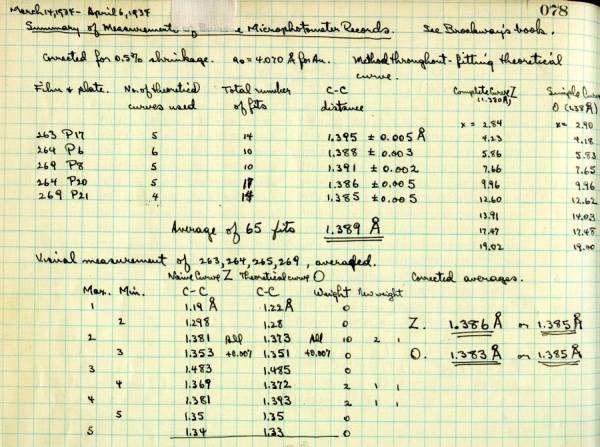 March 14, 1934 - April 6, 1934
078
Summary of Measurements of Microphotometer Records. See Brockway's book.
Corrected for 0.5% shrinkage. a₀ = 4.070 Å for Au. Method throughout - fitting theoretical curve.
Film & plate. No. of theoretical curves used Total number of fits C-C distance Complete Curve Z (1.390Å) Simple Curve O (1.38Å)
x = 2.84 x = 2.90
263 P17 5 14 1.395 ± 0.005 Å 4.23 4.18
264 P6 6 10 1.388 ± 0.003 5.86 5.83
269 P8 5 10 1.391 ± 0.002 7.66 7.65
264 P20 5 17 1.386 ± 0.005 9.96 9.96
269 P21 4 14 1.385 ± 0.005 12.60 12.62
13.91 14.03
Average of 65 fits 1.389 Å 17.47 17.48
19.02 19.00
Visual measurement of 263, 264, 265, 269, averaged.
Naive Curve Z Theoretical curve O Corrected averages.
Max. Min. C-C C-C Weight New weight
1 1.19 Å 1.22 Å 0
2 1.298 1.28 0 Z. 1.386 Å or 1.385 Å
2 1.381 All 1.373 All 10 2 1
3 1.353 +0.007 1.351 +0.007 0 O. 1.383 Å or 1.385 Å
3 1.483 1.485 0
4 1.369 1.372 2 1 1
4 1.381 1.393 2 1 1
5 1.35 1.35 0
5 1.34 1.33 0